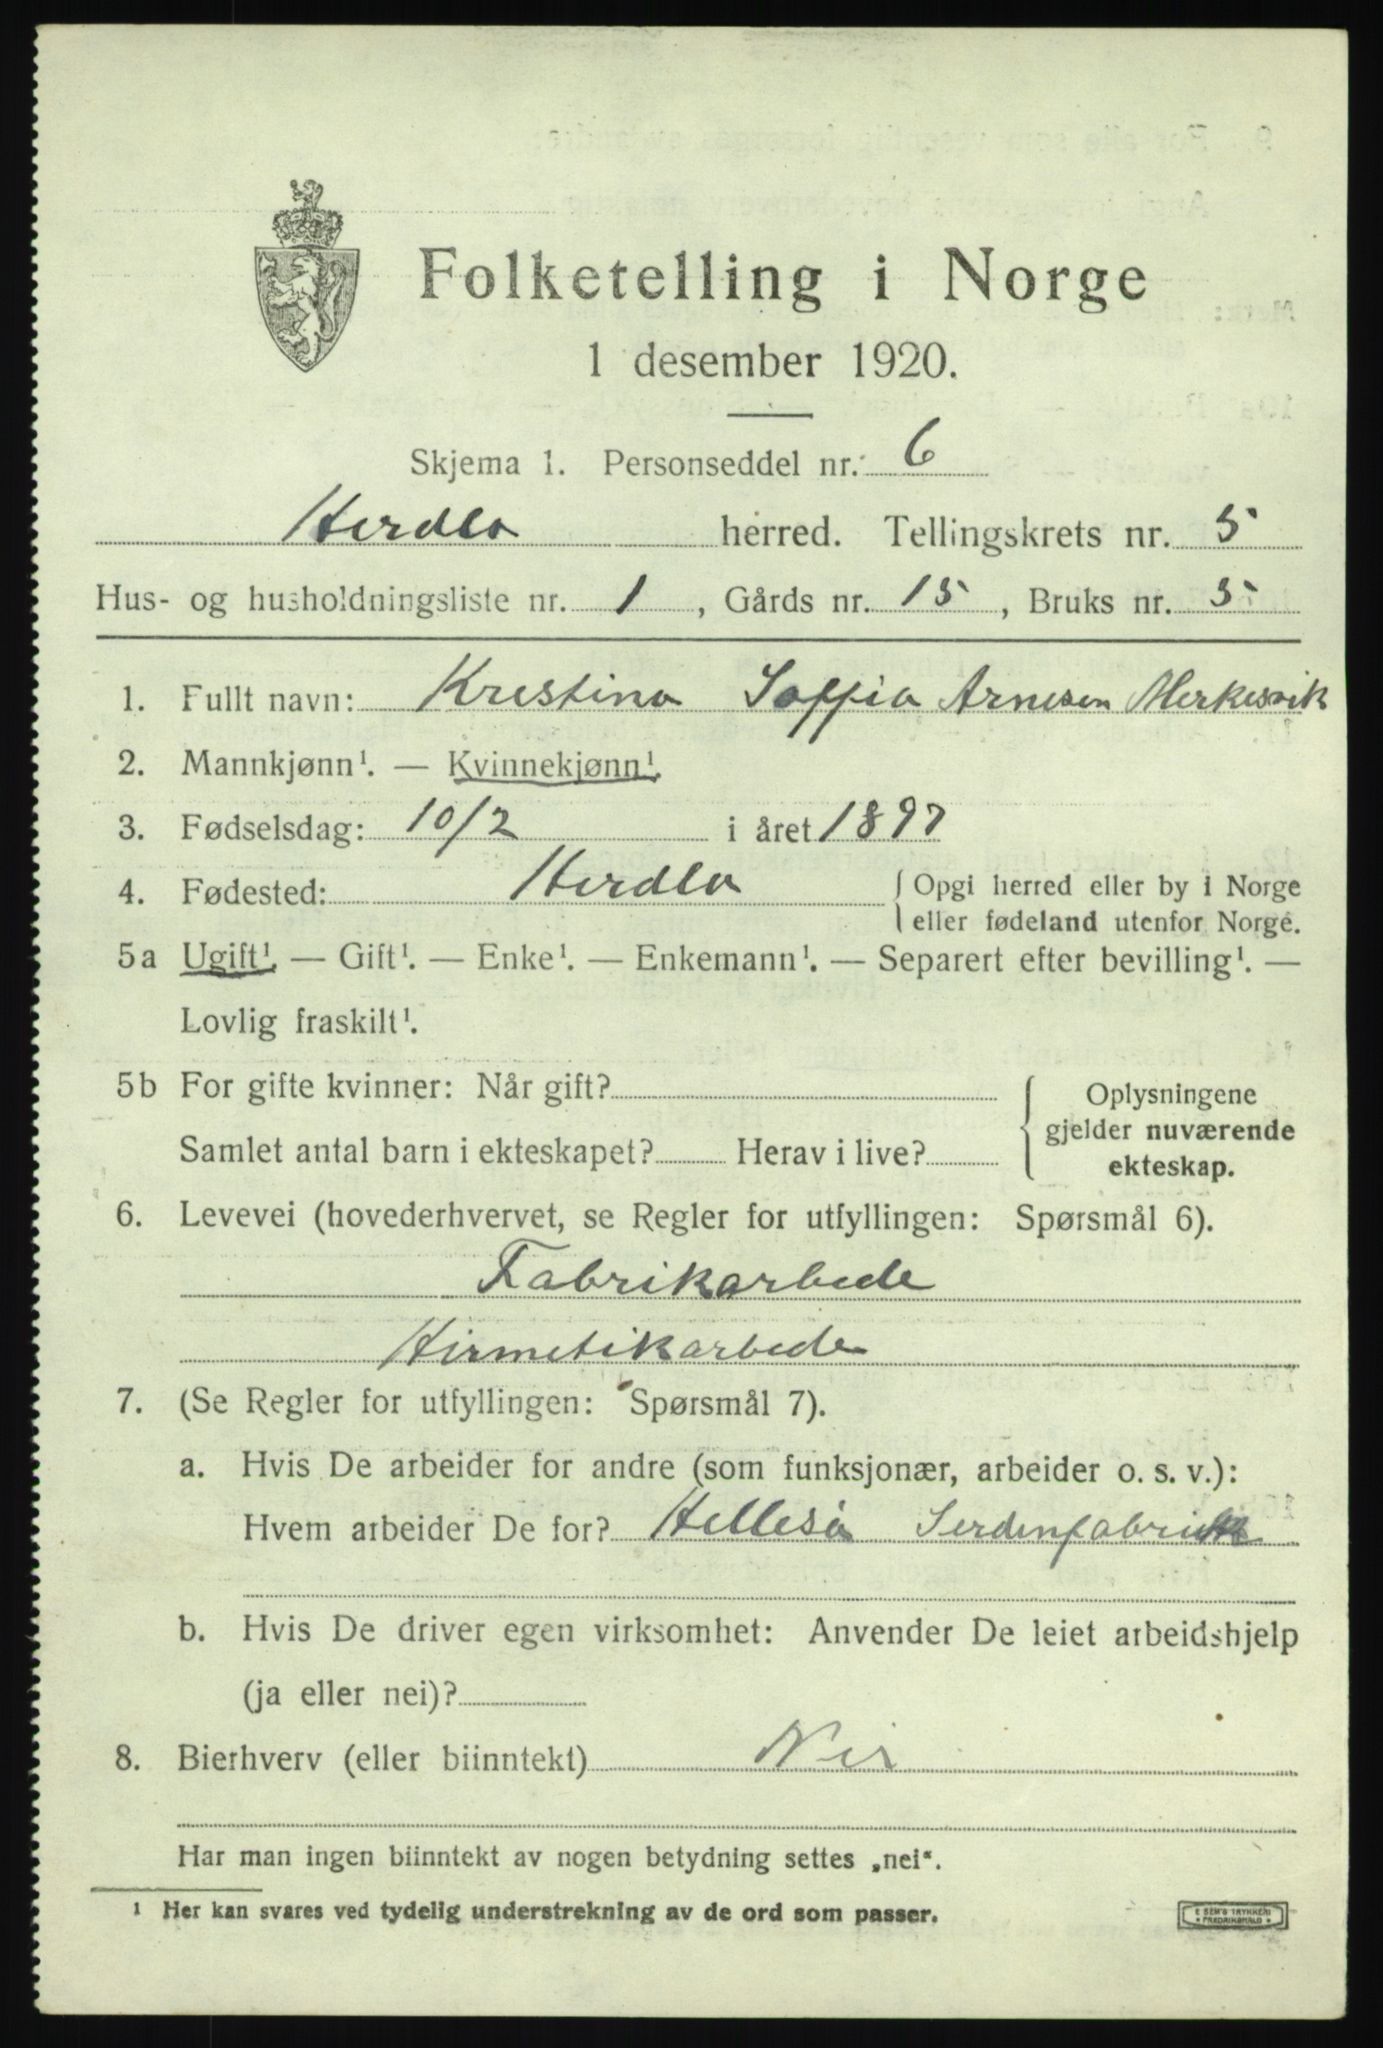 Folketelling i Norge
1 desember 1920.
Skjema 1. Personseddel nr. 6
Herdla herred. Tellingskrets nr. 5
Hus- og husholdningsliste nr. 1, Gårds nr. 15, Bruks nr. 5
1. Fullt navn: Krestina Soffia Arnesen Merkesvik
2. Mannkjønn¹. — Kvinnekjønn¹.
3. Fødselsdag: 10/2 i året 1897
4. Fødested: Herdla { Opgi herred eller by i Norge
eller fødeland utenfor Norge.
5a Ugift¹. — Gift¹. — Enke¹. — Enkemann¹. — Separert efter bevilling¹. —
Lovlig fraskilt¹.
5b For gifte kvinner: Når gift? Oplysningene
gjelder nuværende
Samlet antal barn i ekteskapet? Herav i live? ekteskap.
6. Levevei (hovederhvervet, se Regler for utfyllingen: Spørsmål 6).
Fabrikarbede
Hirmetikarbede
7. (Se Regler for utfyllingen: Spørsmål 7).
a. Hvis De arbeider for andre (som funksjonær, arbeider o. s. v.):
Hvem arbeider De for? Hellesø Serdinfabrikk
b. Hvis De driver egen virksomhet: Anvender De leiet arbeidshjelp
(ja eller nei)?
8. Bierhverv (eller biinntekt) Nei
Har man ingen biinntekt av nogen betydning settes „nei“.
¹ Her kan svares ved tydelig understrekning av de ord som passer.
E SEM'S TRYKKERI
FREDRIKSHALD